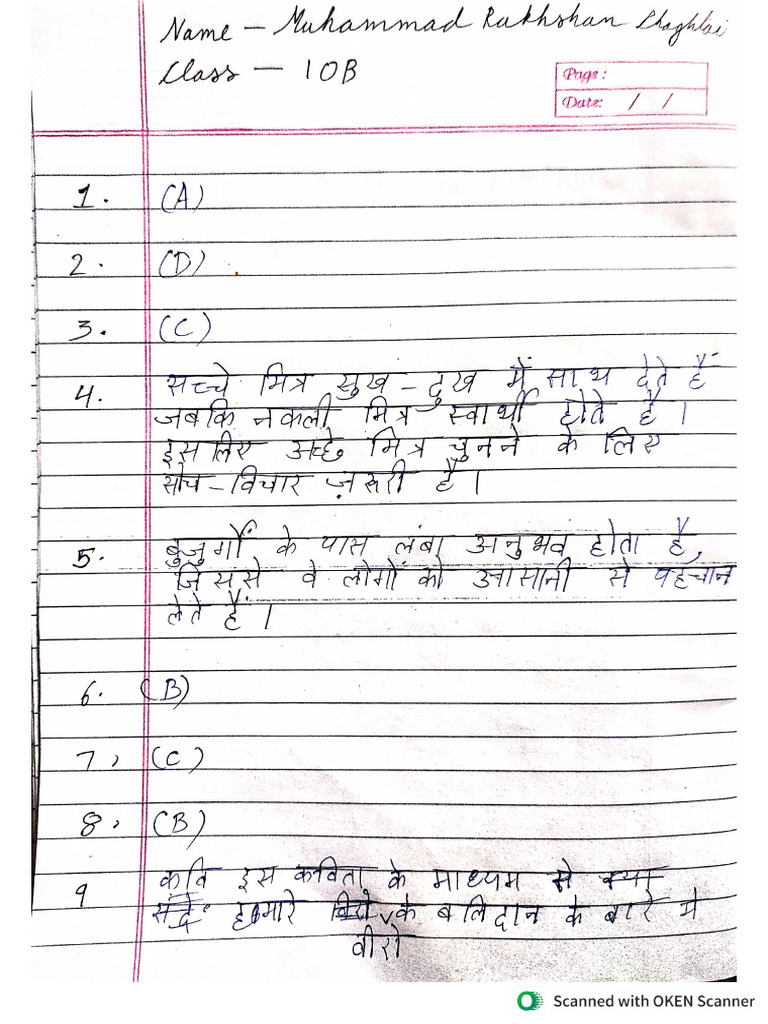 Name - Muhammad Rukhshan Chaghtai
Class - 10B
Page:
Date: / /
1. (A)
2. (D)
3. (C)
4. सच्चे मित्र सुख - दुख में साथ देते हैं
जबकि नकली मित्र स्वार्थी होते है।
इसलिए अच्छे मित्र चुनने के लिए
सोच - विचार ज़रूरी है।
5. बुजुर्गों के पास लंबा अनुभव होता है,
जिससे वे लोगों को आसानी से पहचान
लेते हैं।
6. (B)
7, (C)
8, (B)
9 कवि इस कविता के माध्यम से क्या
हमारे वीरो के बलिदान के बारे मे
Scanned with OKEN Scanner